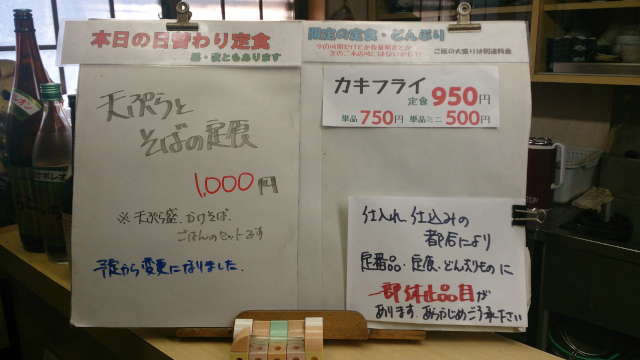 本日の日替わり定食
昼・夜ともあります
天ぷらと
そばの定食
1,000円
※天ぷら盛、かけそば、
ごはんのセットです
予定から変更になりました。
限定の定食・どんぶり
ご飯の大盛りは別途料金
カキフライ
定食 950円
単品 750円 単品ミニ 500円
仕入れ、仕込みの
都合により
定番品・定食・どんぶりものに
一部休止品目が
あります。あらかじめご了承下さい